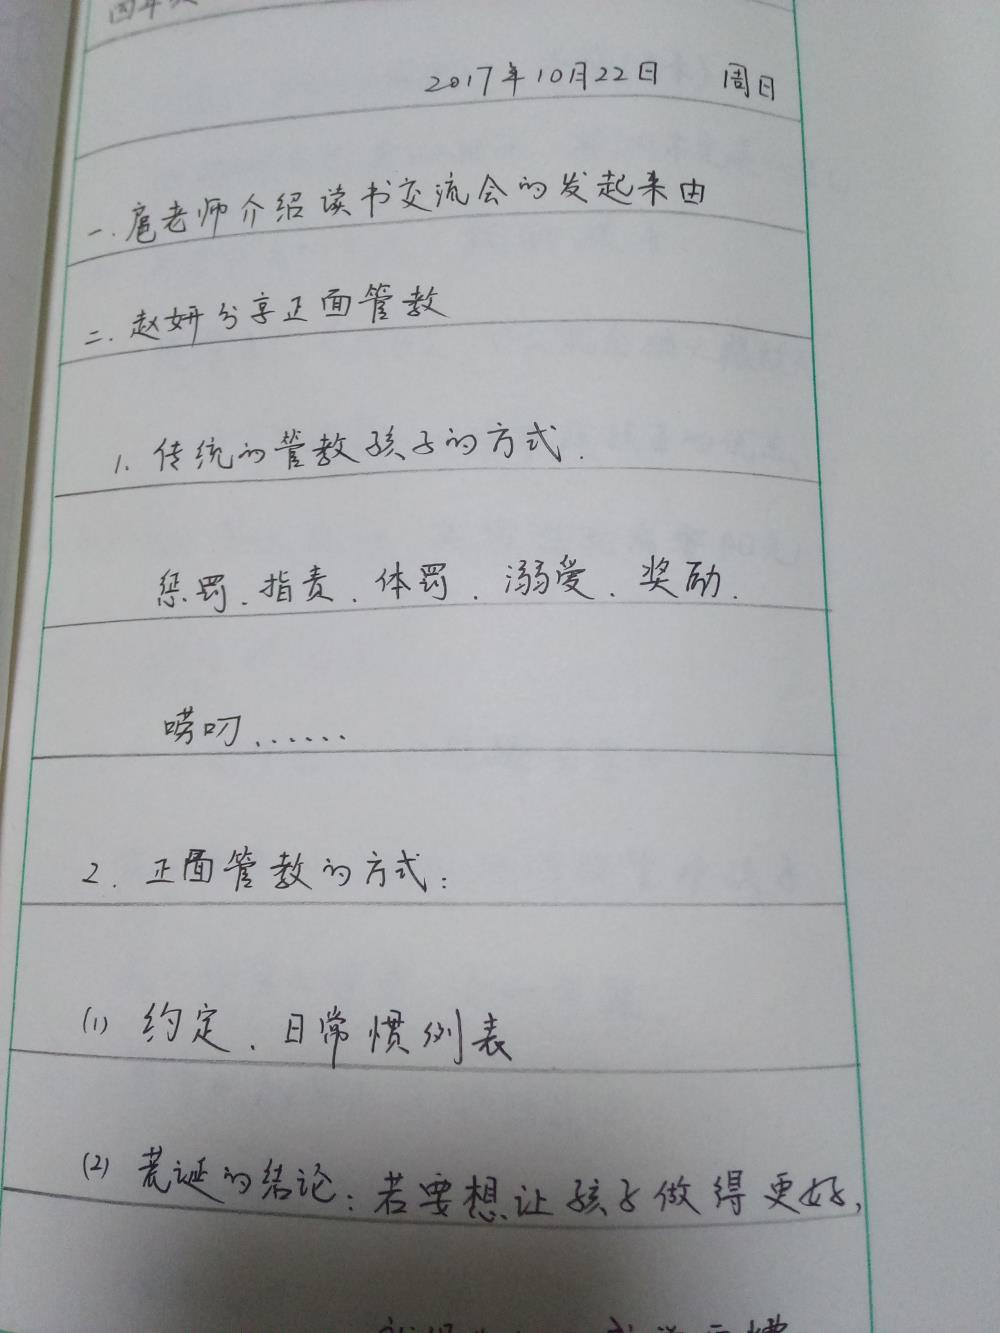 2017年10月22日 周日
一.扈老师介绍读书交流会的发起来由
二.赵妍分享正面管教
1. 传统的管教孩子的方式.
惩罚、指责、体罚、溺爱、奖励.
唠叨……
2. 正面管教的方式:
(1) 约定、日常惯例表
(2) 荒诞的结论:若要想让孩子做得更好,